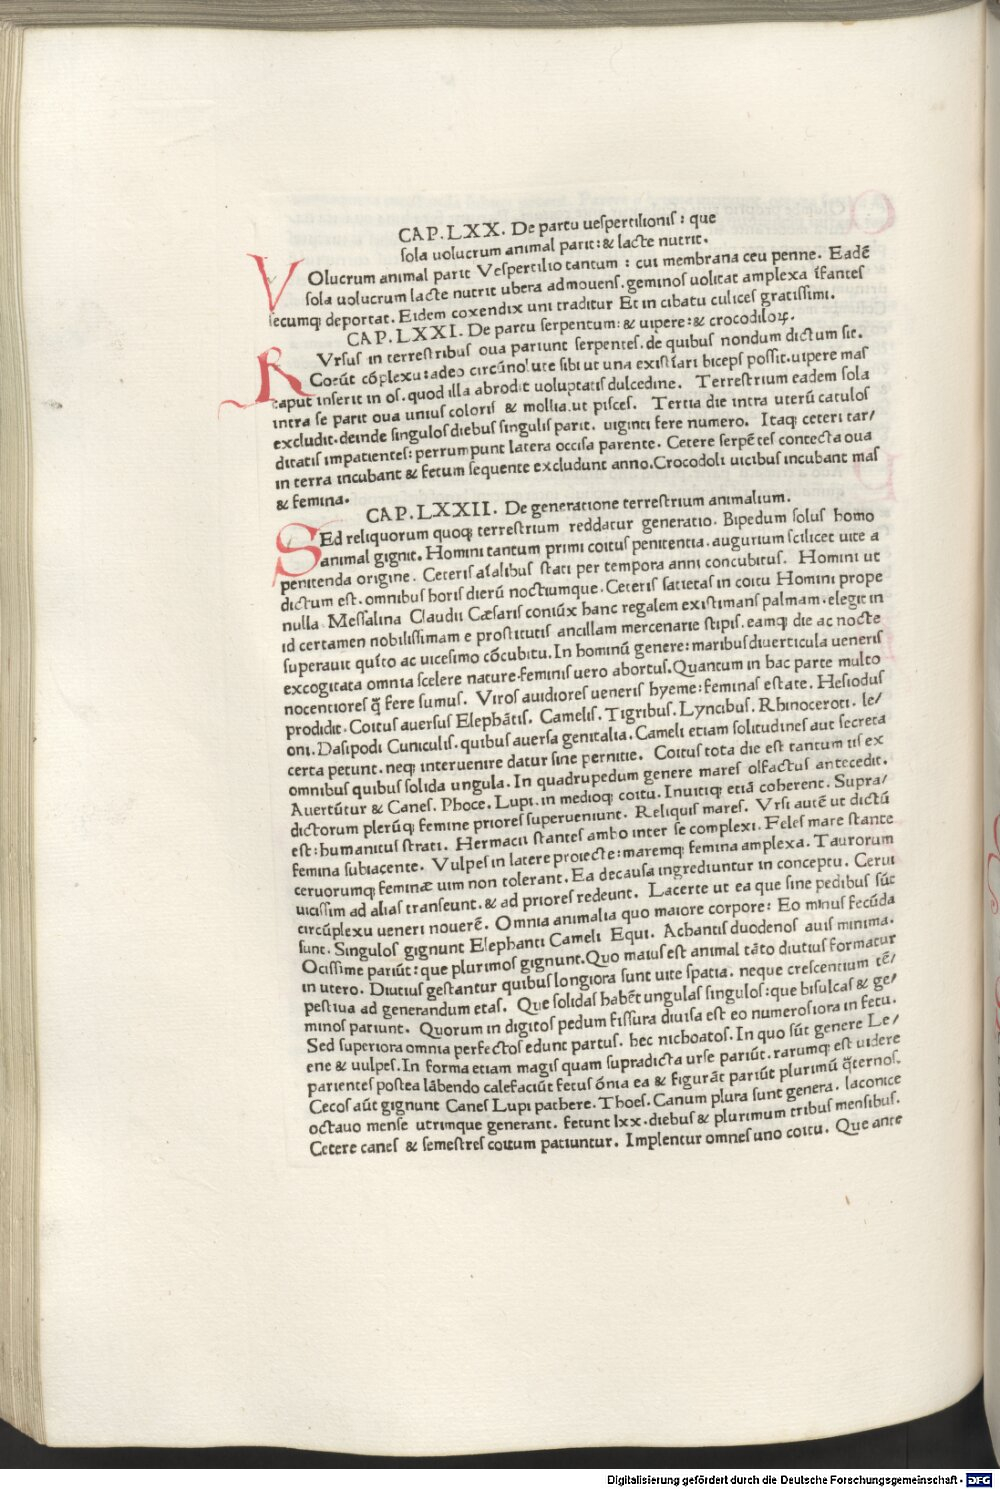 CAP.LXX. De partu uespertilionis : que
sola uolucrum animal parit: & lacte nutrit.
VOlucrum animal parit Vespertilio tantum : cui membrana ceu penne. Eadē
sola uolucrum lacte nutrit ubera admouens. geminos uolitat amplexa īfantes
secumq; deportat. Eidem coxendix uni traditur Et in cibatu culices gratissimi.
CAP.LXXI. De partu serpentum: & uipere: & crocodiloꝝ.
RVrsus in terrestribus oua pariunt serpentes. de quibus nondum dictum sit.
Coeūt cōplexu: adeo circūuolute sibi ut una existīari biceps possit. uipere mas
caput inserit in os. quod illa abrodit uoluptatis dulcedine. Terrestrium eadem sola
intra se parit oua unius coloris & mollia.ut pisces. Tertia die intra uterū catulos
excludit. deinde singulos diebus singulis parit. uiginti fere numero. Itaq; ceteri tar/
ditatis impatientes: perrumpunt latera occisa parente. Cetere serpētes contecta oua
in terra incubant & fetum sequente excludunt anno.Crocodoli uicibus incubant mas
& femina.
CAP.LXXII. De generatione terrestrium animalium.
SEd reliquorum quoq; terrestrium reddatur generatio. Bipedum solus homo
animal gignit. Homini tantum primi coitus penitentia. augurium scilicet uite a
penitenda origine. Ceteris aīalibus stati per tempora anni concubitus. Homini ut
dictum est. omnibus horis dierū noctiumque. Ceteris satietas in coitu Homini prope
nulla. Messalina Claudii Cæsaris coniūx hanc regalem existimans palmam. elegit in
id certamen nobilissimam e prostitutis ancillam mercenarie stipis. eamq; die ac nocte
superauit quīto ac uicesimo cōcubitu. In hominū genere: maribus diuerticula ueneris
excogitata omnia scelere nature. feminis uero abortus. Quantum in hac parte multo
nocentiores q̄ fere sumus. Viros auidiores ueneris hyeme: feminas estate. Hesiodus
prodidit. Coitus auersus Elephātis. Camelis. Tigribus. Lyncibus. Rhinoceroti. le/
oni. Dasipodi Cuniculis. quibus auersa genitalia. Cameli etiam solitudines aut secreta
certa petunt. neq; interuenire datur sine pernitie. Coitus tota die est tantum iis ex
omnibus quibus solida ungula. In quadrupedum genere mares olfactus antecedit.
Auertūtur & Canes. Phoce. Lupi. in medioq; coitu. Inuitiq; etiā coherent. Supra/
dictorum plerūq; femine priores superueniunt. Reliquis mares. Vrsi autē ut dictū
est: humanitus strati. Hermacii stantes ambo inter se complexi. Feles mare stante
femina subiacente. Vulpes in latere proiecte: maremq; femina amplexa. Taurorum
ceruorumq; feminæ uim non tolerant. Ea decausa ingrediuntur in conceptu. Cerui
uicissim ad alias transeunt. & ad priores redeunt. Lacerte ut ea que sine pedibus sūt
circūplexu ueneri nouerē. Omnia animalia quo maiore corpore: Eo minus fecūda
sunt. Singulos gignunt Elephanti Cameli Equi. Achantis duodenos auis minima.
Ocissime pariūt: que plurimos gignunt. Quo maius est animal tāto diutius formatur
in utero. Diutius gestantur quibus longiora sunt uite spatia. neque crescentium tē/
pestiua ad generandum etas. Que solidas habēt ungulas singulos: que bisulcas & ge/
minos pariunt. Quorum in digitos pedum fissura diuisa est eo numerosiora in fetu.
Sed superiora omnia perfectos edunt partus. hec nichoatos. In quo sūt genere Le/
ene & uulpes. In forma etiam magis quam supradicta urse pariūt. rarumq; est uidere
parientes postea lābendo calefaciūt fetus ōnia ea & figurāt pariūt plurimū q̄ternos.
Cecos aūt gignunt Canes Lupi pathere. Thoes. Canum plura sunt genera. laconice
octauo mense utrimque generant. fetunt lxx. diebus & plurimum tribus mensibus.
Cetere canes & semestres coitum patiuntur. Implentur omnes uno coitu. Que ante
Digitalisierung gefördert durch die Deutsche Forschungsgemeinschaft - DFG